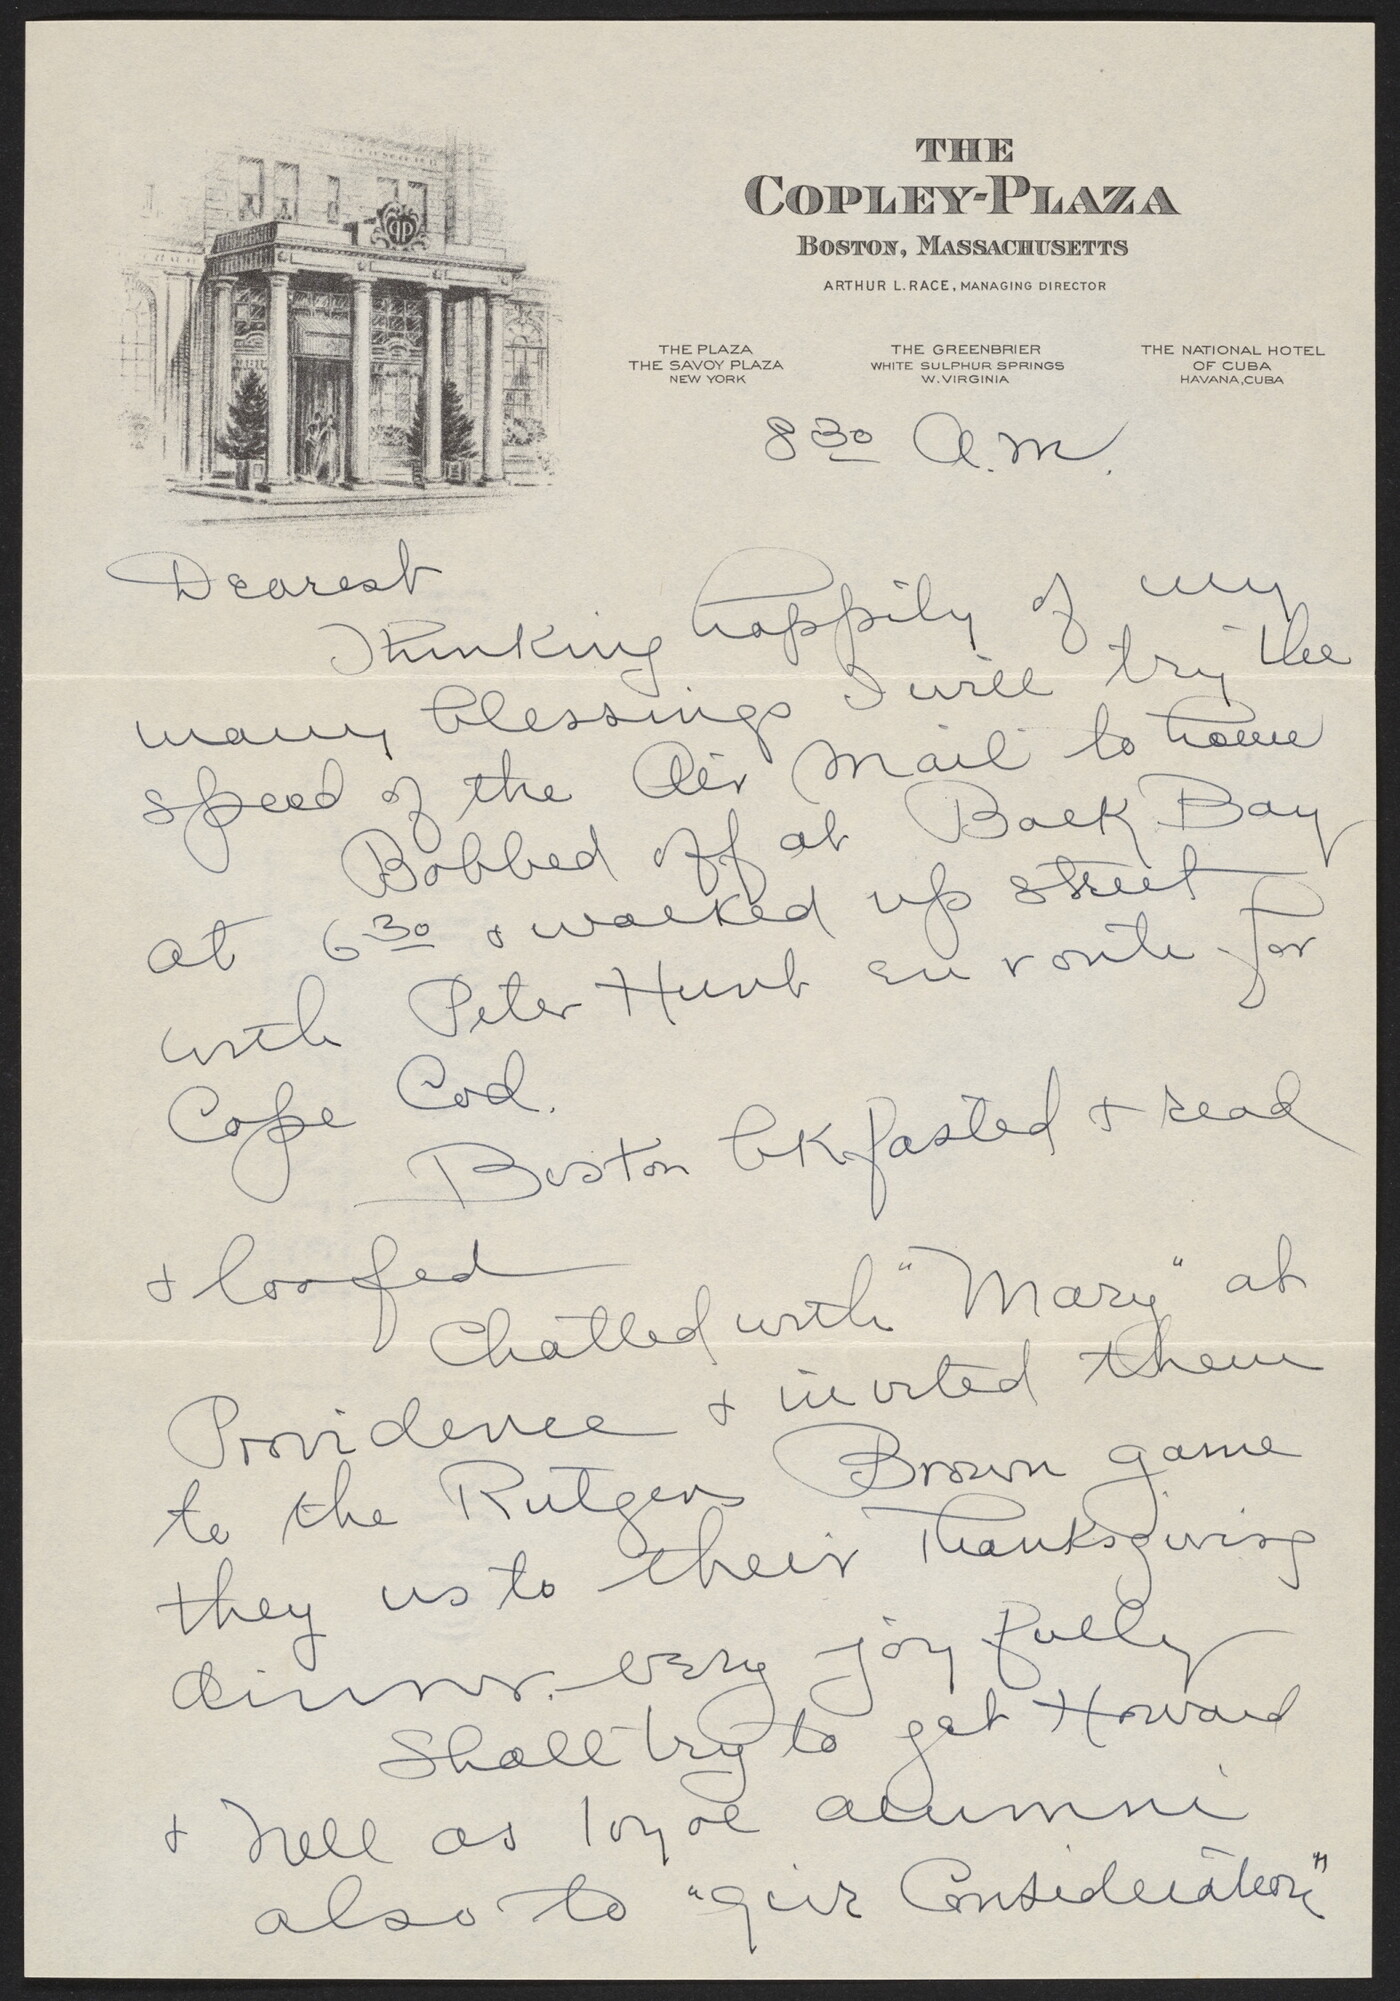 THE
COPLEY-PLAZA
BOSTON, MASSACHUSETTS
ARTHUR L. RACE, MANAGING DIRECTOR
THE PLAZA
THE SAVOY PLAZA
NEW YORK
THE GREENBRIER
WHITE SULPHUR SPRINGS
W. VIRGINIA
THE NATIONAL HOTEL
OF CUBA
HAVANA, CUBA
8 30 A.M.
Dearest
Thinking happily of my
many blessings I will try the
speed of the Air Mail to home
Bobbed off at Back Bay
at 6 30 & walked up street
with Peter Hunt en route for
Cape Cod.
Boston bkfasted & read
& loafed
Chatted with "Mary" at
Providence & invited them
to the Rutgers Brown game
they us to their Thanksgiving
dinner. very joyfully
Shall try to get Howard
& Nell as loyal alumni
also to "give Consideration"